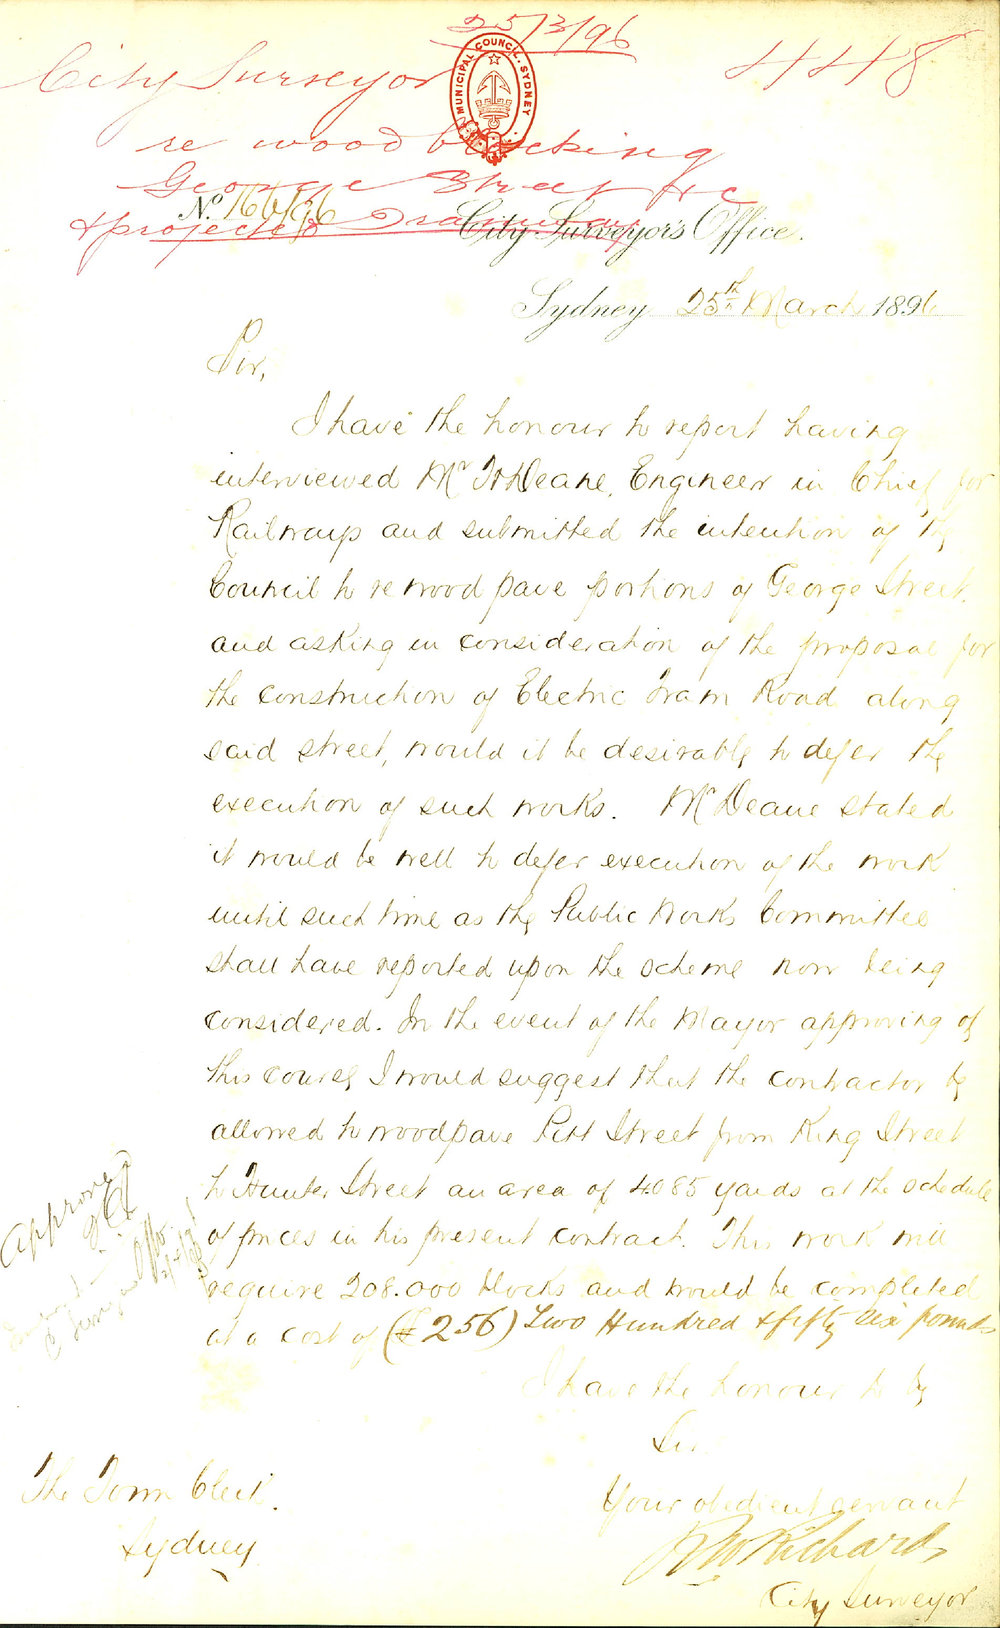 25/3/96
City Surveyor 448
MUNICIPAL COUNCIL. SYDNEY
re wood blocking
George Street &c
& projected Tramway
No. 166/96 City Surveyor's Office.
Sydney 25th March 1896
Sir,
I have the honour to report having
interviewed Mr H Deane, Engineer in Chief for
Railways and submitted the intention of the
Council to re wood pave portions of George Street
and asking in consideration of the proposal for
the construction of Electric Tram Road along
said street, would it be desirable to defer the
execution of such works. Mr Deane stated
it would be well to defer execution of the work
until such time as the Public Works Committee
shall have reported upon the scheme now being
considered. In the event of the Mayor approving of
this course I would suggest that the contractor be
allowed to woodpave Pitt Street from King Street
to Hunter Street an area of 4085 yards at the schedule
of prices in his present contract. This work will
require 208.000 blocks and would be completed
at a cost of (£256) Two Hundred & fifty six pounds
I have the honour to be
Sir
Your obedient servant
RW Richards
City Surveyor
The Town Clerk.
Sydney
Approved
C Surveyor